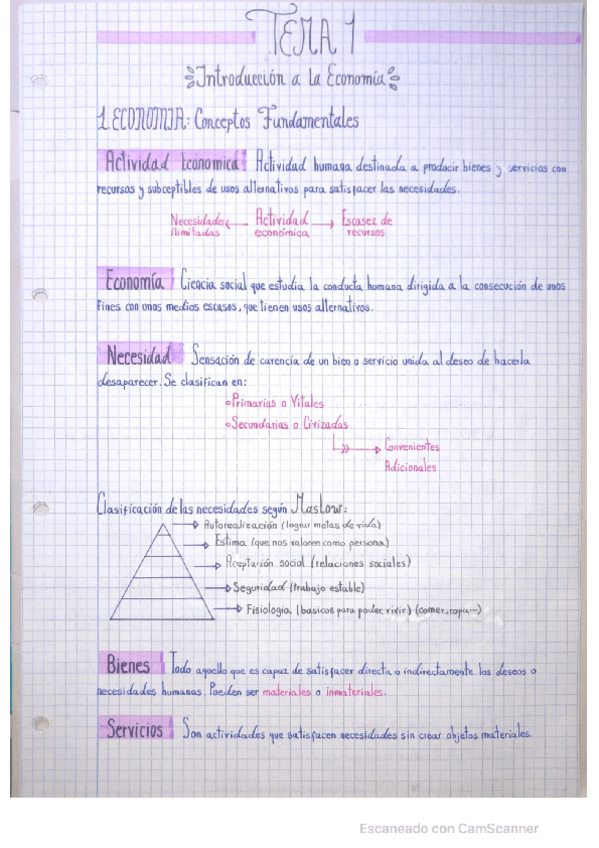 TEMA 1
Introducción a la Economía
1. ECONOMIA: Conceptos Fundamentales
Actividad Economica: Actividad humana destinada a producir bienes y servicios con
recursos y subceptibles de usos alternativos para satisfacer las necesidades.
Necesidades ← Actividad → Escasez de
Ilimitadas económica recursos
Economía Ciencia social que estudia la conducta humana dirigida a la consecución de unos
fines con unos medios escasos, que tienen usos alternativos.
Necesidad Sensación de carencia de un bien o servicio unida al deseo de hacerla
desaparecer. Se clasifican en:
Primarias o Vitales
Secundarias o Civizadas
Convenientes
Adicionales
Clasificación de las necesidades según Maslow:
Autorealización (lograr metas de vida)
Estima (que nos valoren como persona)
Aceptación social (relaciones sociales)
Seguridad (trabajo estable)
Fisiología (basicos para poder vivir) (comer, ropa...)
Bienes Todo aquello que es capaz de satisfacer directa o indirectamente los deseos o
necesidades humanas. Pueden ser materiales o inmateriales.
Servicios Son actividades que satisfacen necesidades sin crear objetos materiales.
Escaneado con CamScanner